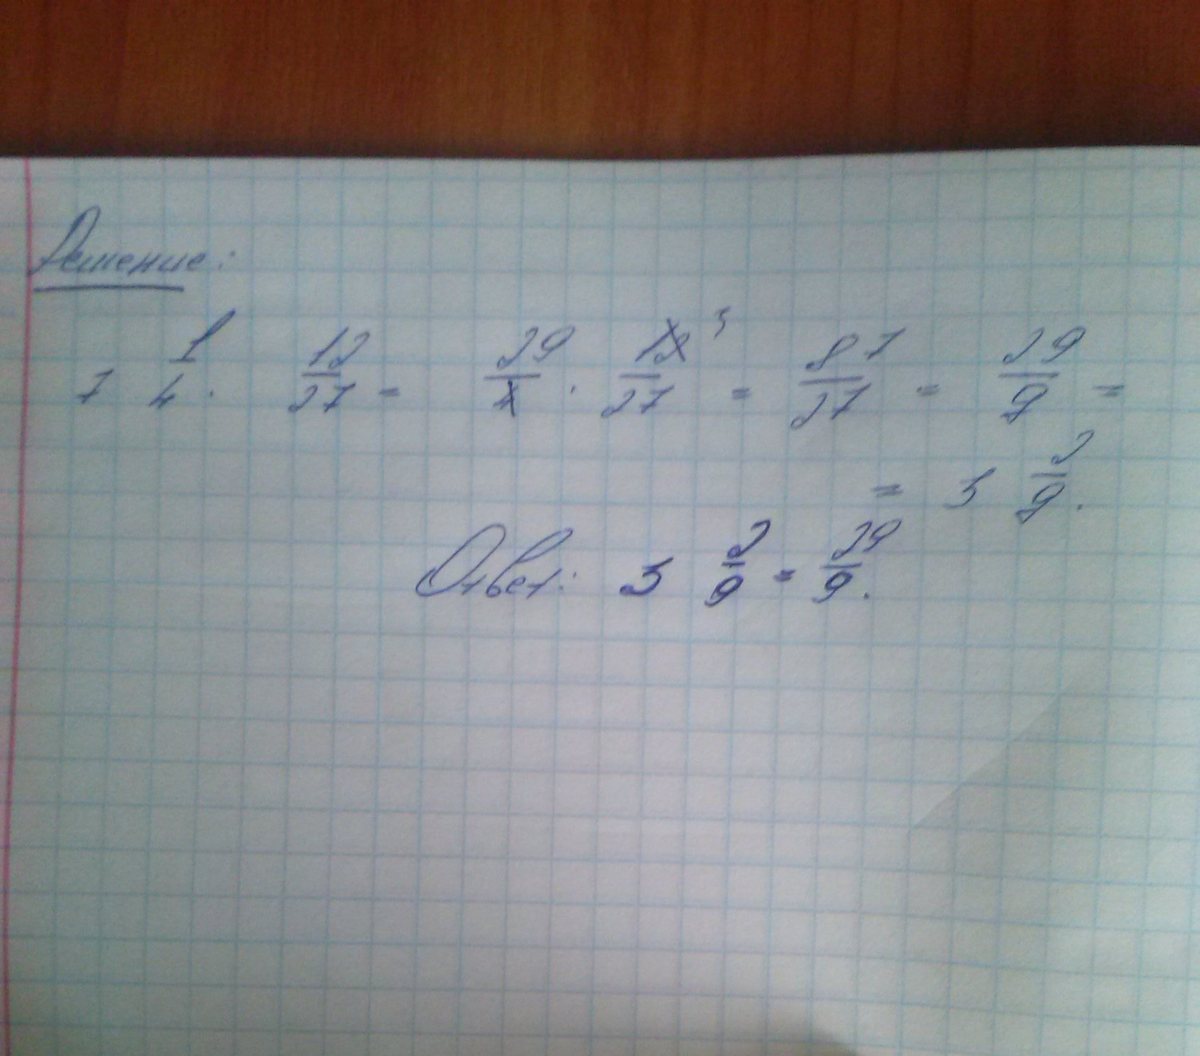 Решение:
7 1/4 · 12/27 = 29/4 · 12/27 3 = 87/27 = 29/9 =
= 3 2/9.
Ответ: 3 2/9 = 29/9.